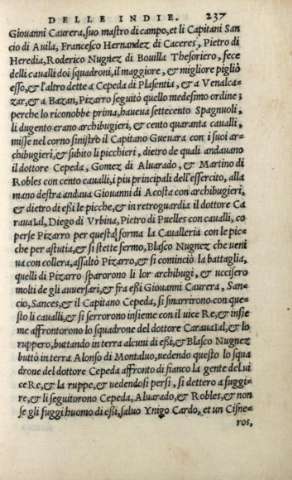 DELLE INDIE. 237
Giouanni Caurera, suo mastro di campo, et li Capitani San
cio di Auila, Francesco Hernandez di Caceres, Pietro di
Heredia, Roderico Nugnez di Bouilla Thesoriero, fece
delli caualli doi squadroni, il maggiore, & migliore pigliò
esso, & l'altro dette a Cepeda di Plasentia, & a Venalca=
zar, & a Bazan, Pizarro seguitò quello medesimo ordine;
perche lo riconobbe prima, haueua settecento Spagnuoli,
li dugento erano archibugieri, & cento quaranta caualli,
misse nel corno sinistro il Capitano Gueuara con i suoi ar=
chibugieri, & subito li picchieri, dietro de quali andauano
il dottore Cepeda, Gomez di Aluarado, & Martino di
Robles con cento caualli, i piu principali dell'essercito, alla
mano destra andaua Giouanni di Acosta con archibugieri,
& dietro di essi le picche, & in retroguardia il dottore Ca
rauaial, Diego di Vrbina, Pietro di Puelles con caualli, co
perse Pizarro per questa forma la Caualleria con le pic=
che per astutia, & si stette fermo, Blasco Nugnez che ueni
ua con collera, assaltò Pizarro, & si cominciò la battaglia,
quelli di Pizarro spararono li lor archibugi, & uccisero
molti de gli auuersari, & fra essi Giouanni Caurera, San=
cio, Sances, & il Capitano Cepeda, si smarrirono con que=
sto li caualli, & si serrorono insieme con il uice Re, & insie
me affrontorono lo squadrone del dottore Carauaial, & lo
ruppero, buttando in terra alcuni di essi, & Blasco Nugnez
buttò in terra Alonso di Montaluo, uedendo questo lo squa
drone del dottore Cepeda affrontò di fianco la gente del ui
ce Re, & la ruppe, & uedendosi persi, si dettero a fuggi=
re, & li seguitorono Cepeda, Aluarado, & Robles, & non
se gli fuggì huomo di essi, saluo Ynigo Cardo, et un Cisne=
ros,